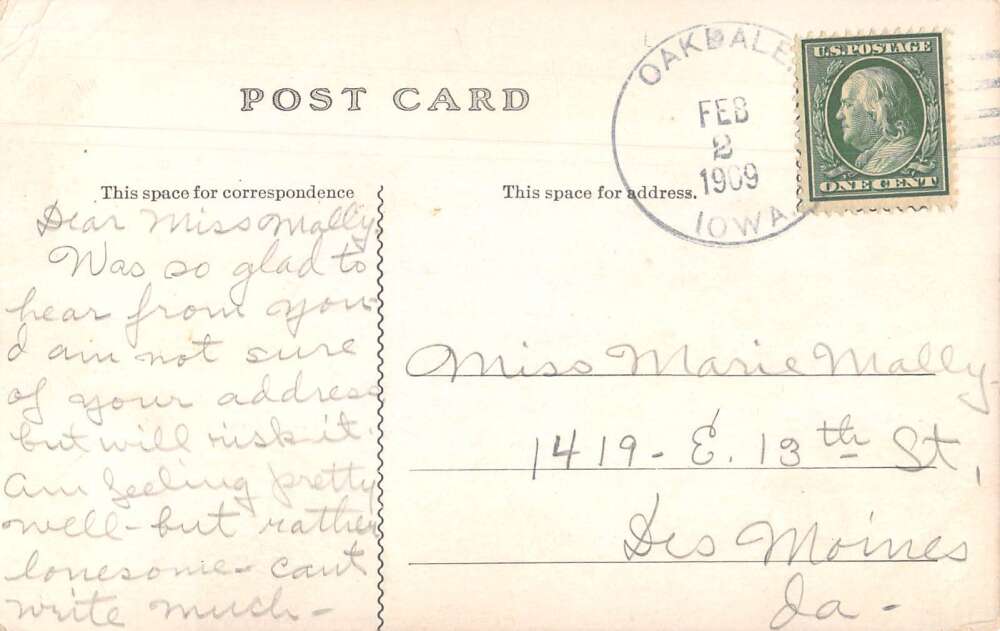 POST CARD
OAKDALE
FEB
2
1909
IOWA.
U.S. POSTAGE
ONE CENT
This space for correspondence
Dear Miss Mally
Was so glad to
hear from you-
I am not sure
of your address
but will risk it.
Am feeling pretty
well - but rather
lonesome - can't
write much -
This space for address.
Miss Marie Mally.
1419 - E. 13th St,
Des Moines
Ia -